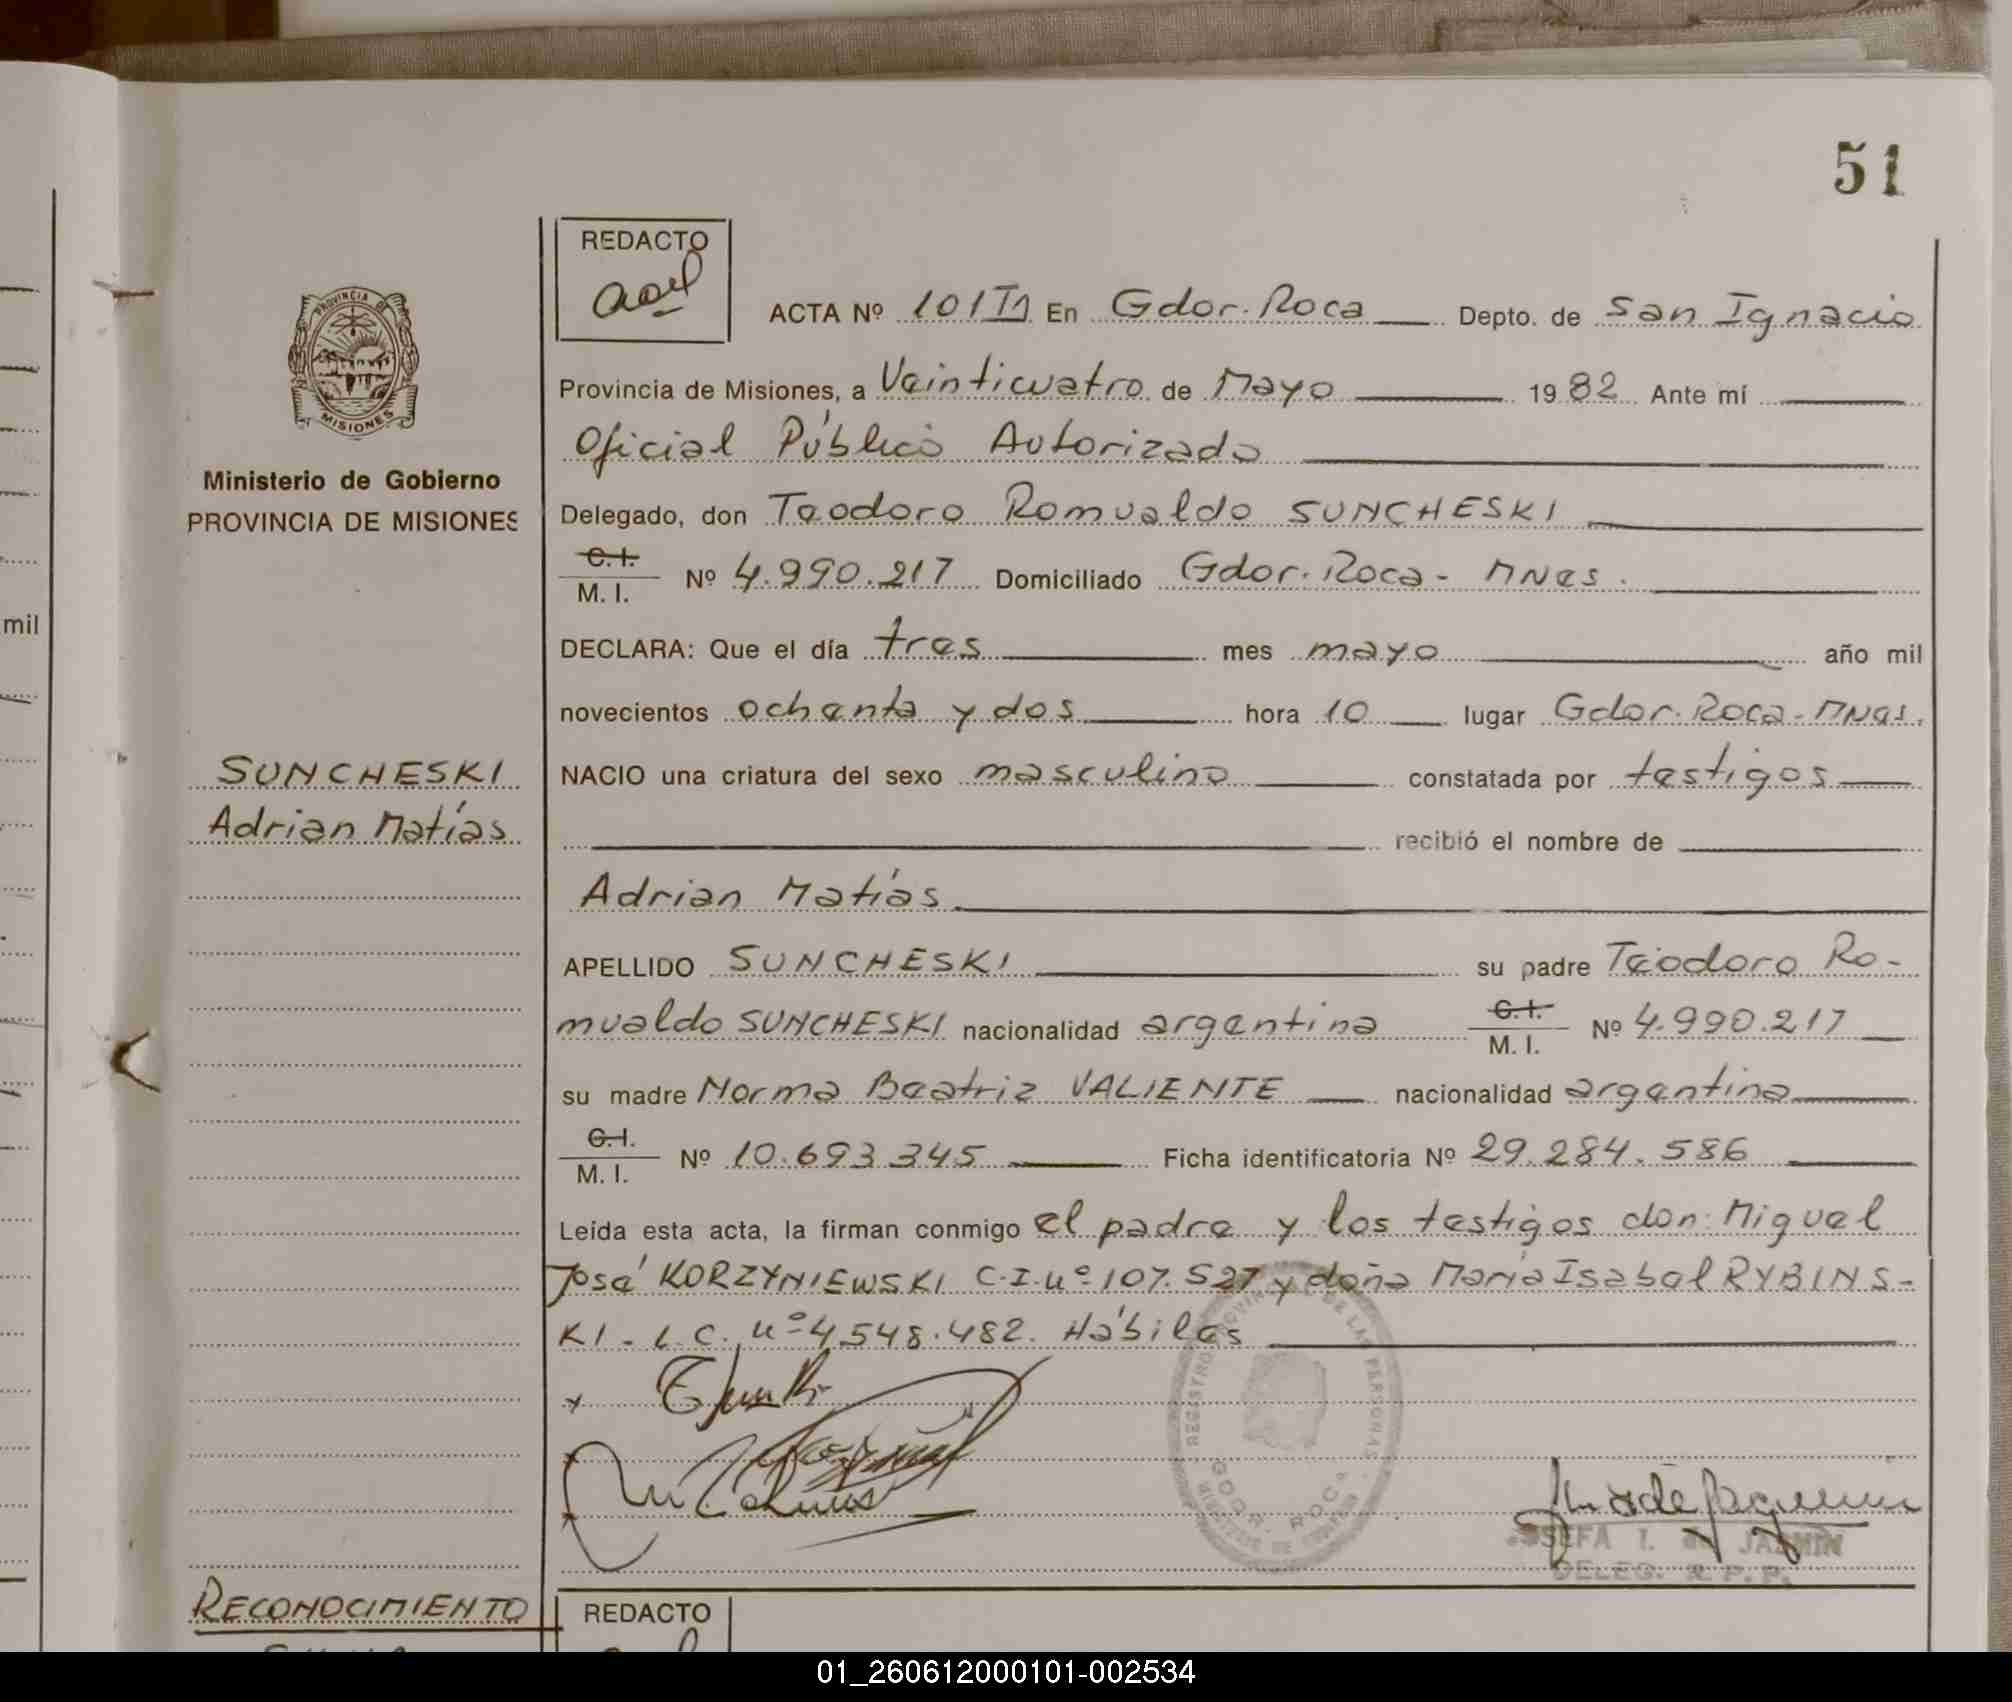 51
REDACTO
ACTA Nº 101 T1 En Gdor. Roca Depto. de San Ignacio
Provincia de Misiones, a Veinticuatro de Mayo 1982 Ante mí
Oficial Público Autorizado
Delegado, don Teodoro Romualdo SUNCHESKI
C.I.
M. I. Nº 4.990.217 Domiciliado Gdor. Roca - MNes.
DECLARA: Que el día tres mes mayo año mil
novecientos ochenta y dos hora 10 lugar Gdor. Roca - MNes.
NACIO una criatura del sexo masculino constatada por testigos
recibió el nombre de
Adrian Matías
APELLIDO SUNCHESKI su padre Teodoro Ro-
mualdo SUNCHESKI nacionalidad argentina C.I. M. I. Nº 4.990.217
su madre Norma Beatriz VALIENTE nacionalidad argentina
C.I.
M. I. Nº 10.693.345 Ficha identificatoria Nº 29.284.586
Leída esta acta, la firman conmigo el padre y los testigos don: Miguel
José KORZYNIEWSKI C.I. nº 107.527 y doña María Isabel RYBINS-
KI - L.C. nº 4.548.482. Hábiles
REGISTRO PROVINCIAL DE LAS PERSONAS
GDOR. ROCA
JOSEFA I. de JAZMIN
DELEG. R.P.P.
PROVINCIA DE
MISIONES
Ministerio de Gobierno
PROVINCIA DE MISIONES
SUNCHESKI
Adrian Matías
RECONOCIMIENTO
REDACTO
mil
01_260612000101-002534